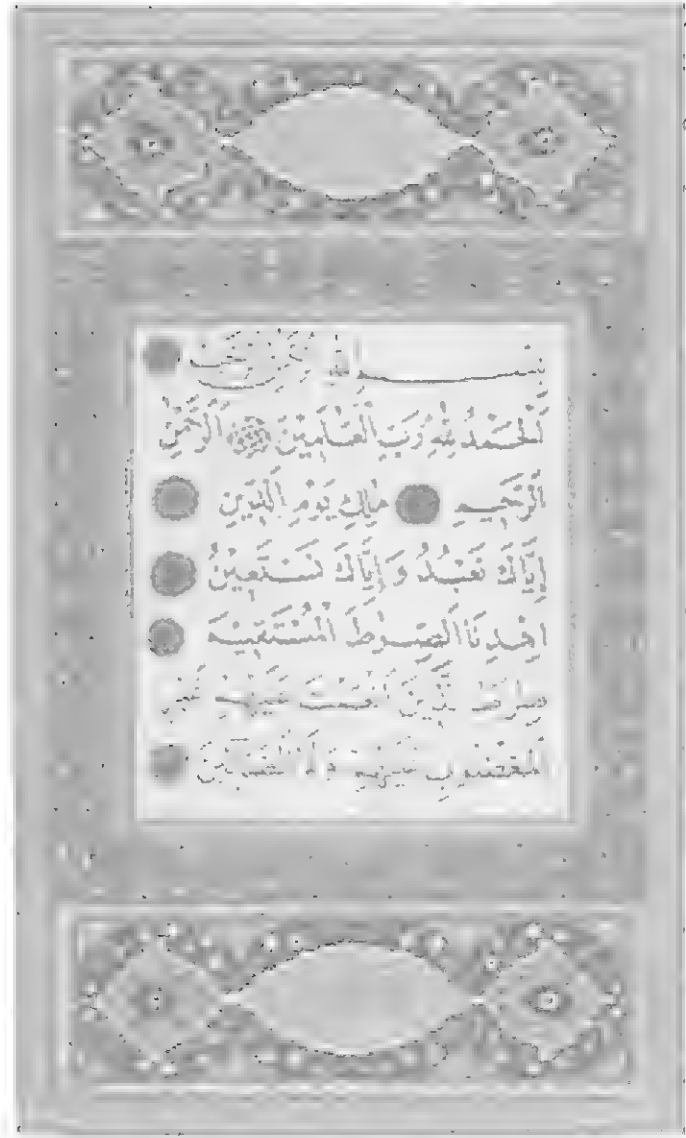 بِسْمِ ٱللَّهِ ٱلرَّحْمَٰنِ ٱلرَّحِيمِ
ٱلْحَمْدُ لِلَّهِ رَبِّ ٱلْعَالَمِينَ ٱلرَّحْمَٰنِ
ٱلرَّحِيمِ مَٰلِكِ يَوْمِ ٱلدِّينِ
إِيَّاكَ نَعْبُدُ وَإِيَّاكَ نَسْتَعِينُ
ٱهْدِنَا ٱلصِّرَٰطَ ٱلْمُسْتَقِيمَ
صِرَٰطَ ٱلَّذِينَ أَنْعَمْتَ عَلَيْهِمْ غَيْرِ
ٱلْمَغْضُوبِ عَلَيْهِمْ وَلَا ٱلضَّالِّينَ